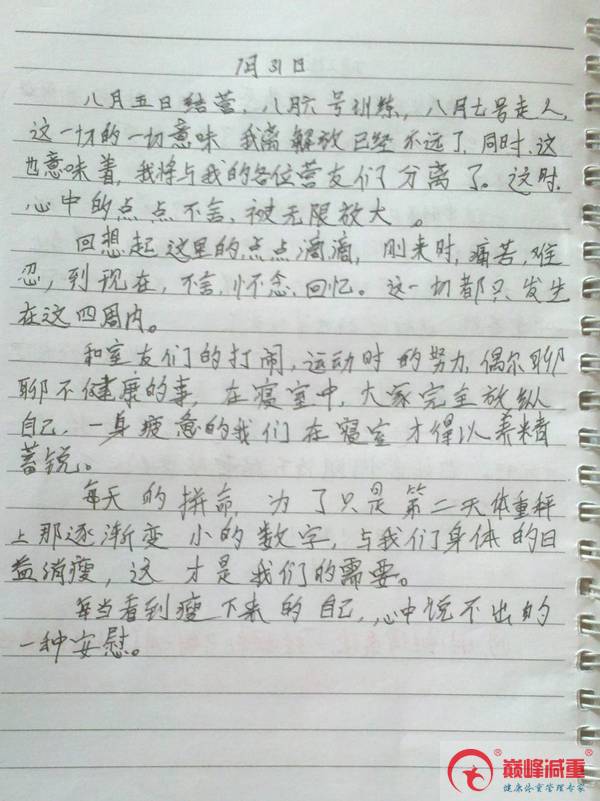 7月31日
八月五日结营，八月六号训练，八月七号走人，
这一切的一切意味 我离解放已经不远了，同时，这
也意味着，我将与我的各位营友们分离了。这时，
心中的点点不舍，被无限放大。
回想起这里的点点滴滴，刚来时，痛苦，难
忍，到现在，不舍，怀念，回忆。这一切都只发生
在这四周内。
和室友们的打闹，运动时的努力，偶尔聊
聊不健康的事，在寝室中，大家完全放纵
自己，一身疲惫的我们在寝室才得以养精
蓄锐。
每天的拼命，为了只是第二天体重秤
上那逐渐变小的数字，与我们身体的日
益消瘦，这才是我们的需要。
每当看到瘦下来的自己，心中说不出的
一种安慰。
巅峰减重
健康体重管理专家